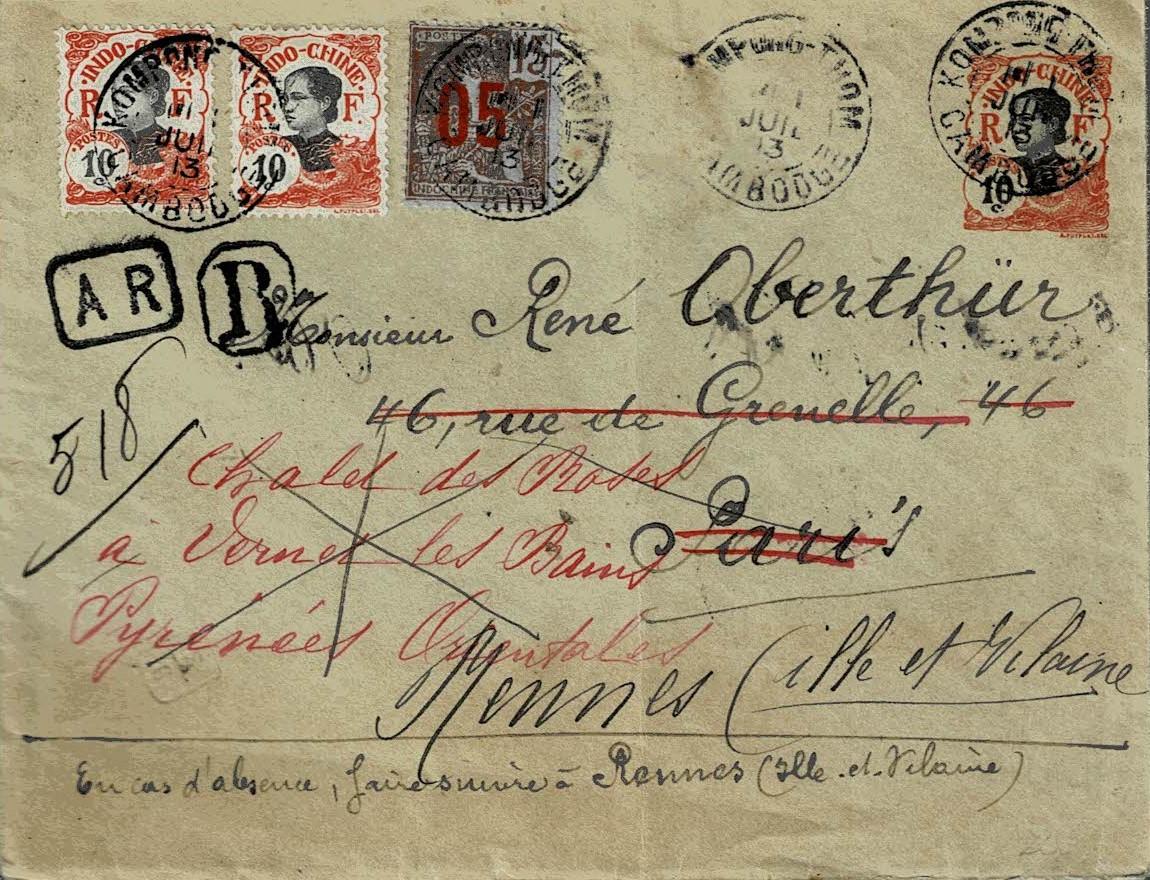 INDO-CHINE R F POSTES 10
INDO-CHINE R F POSTES 10
POSTES 15 05 INDO-CHINE FRANÇAISE
INDO-CHINE R F 10
A.PUYPLAT.SEL.
A.PUYPLAT.SEL.
KOMPONG-THOM JUIL 13 CAMBODGE
KOMPONG-THOM JUIL 13 CAMBODGE
KOMPONG-THOM JUIL 13 CAMBODGE
KOMPONG-THOM JUIL 13 CAMBODGE
A R
R
Monsieur René Oberthür
46, rue de Grenelle, 46
518
Chalet des Roses
Paris
à Vernet les Bains
Pyrénées Orientales
Rennes (ille et Vilaine
En cas d'absence, faire suivre à Rennes (Ille-et-Vilaine)